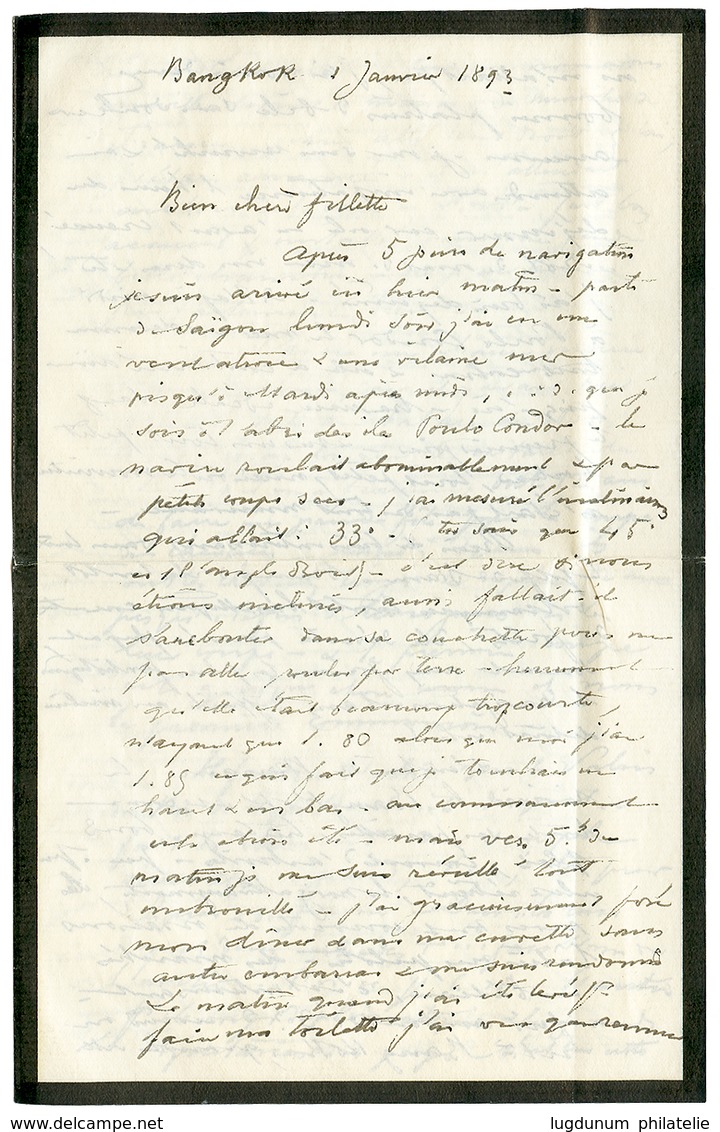 Bangkok 1 Janvier 1893
Bien chère fillette
Après 5 jours de navigation
je suis arrivé ici hier matin - parti
de Saïgon lundi soir j'ai eu un
vent atroce & une vilaine mer
jusqu'à Mardi après midi, c.à.d. que je
sois à l'abri des îles Poulo Condor - le
navire roulait abominablement & par
petits coups secs - j'ai mesuré l'inclinaison
qui allait : 33° - tu sais que 45°
est l'angle droit - c'est dire si nous
étions inclinés, aussi fallait-il
s'arcbouter dans sa couchette pour ne
pas aller rouler par terre - heureusement
qu'elle était beaucoup trop courte,
n'ayant que 1.80 alors que moi j'ai
1.85 ce qui fait que je touchais en
haut & en bas - au commencement
cela alors été - mais vers 5.h du
matin je me suis réveillé tout
embrouillé - j'ai gracieusement posé
mon dîner dans ma cuvette sans
autre embarras & me suis rendormi
Le matin quand j'ai été levé p.
faire ma toilette j'ai vu que
lugdunum philatelie